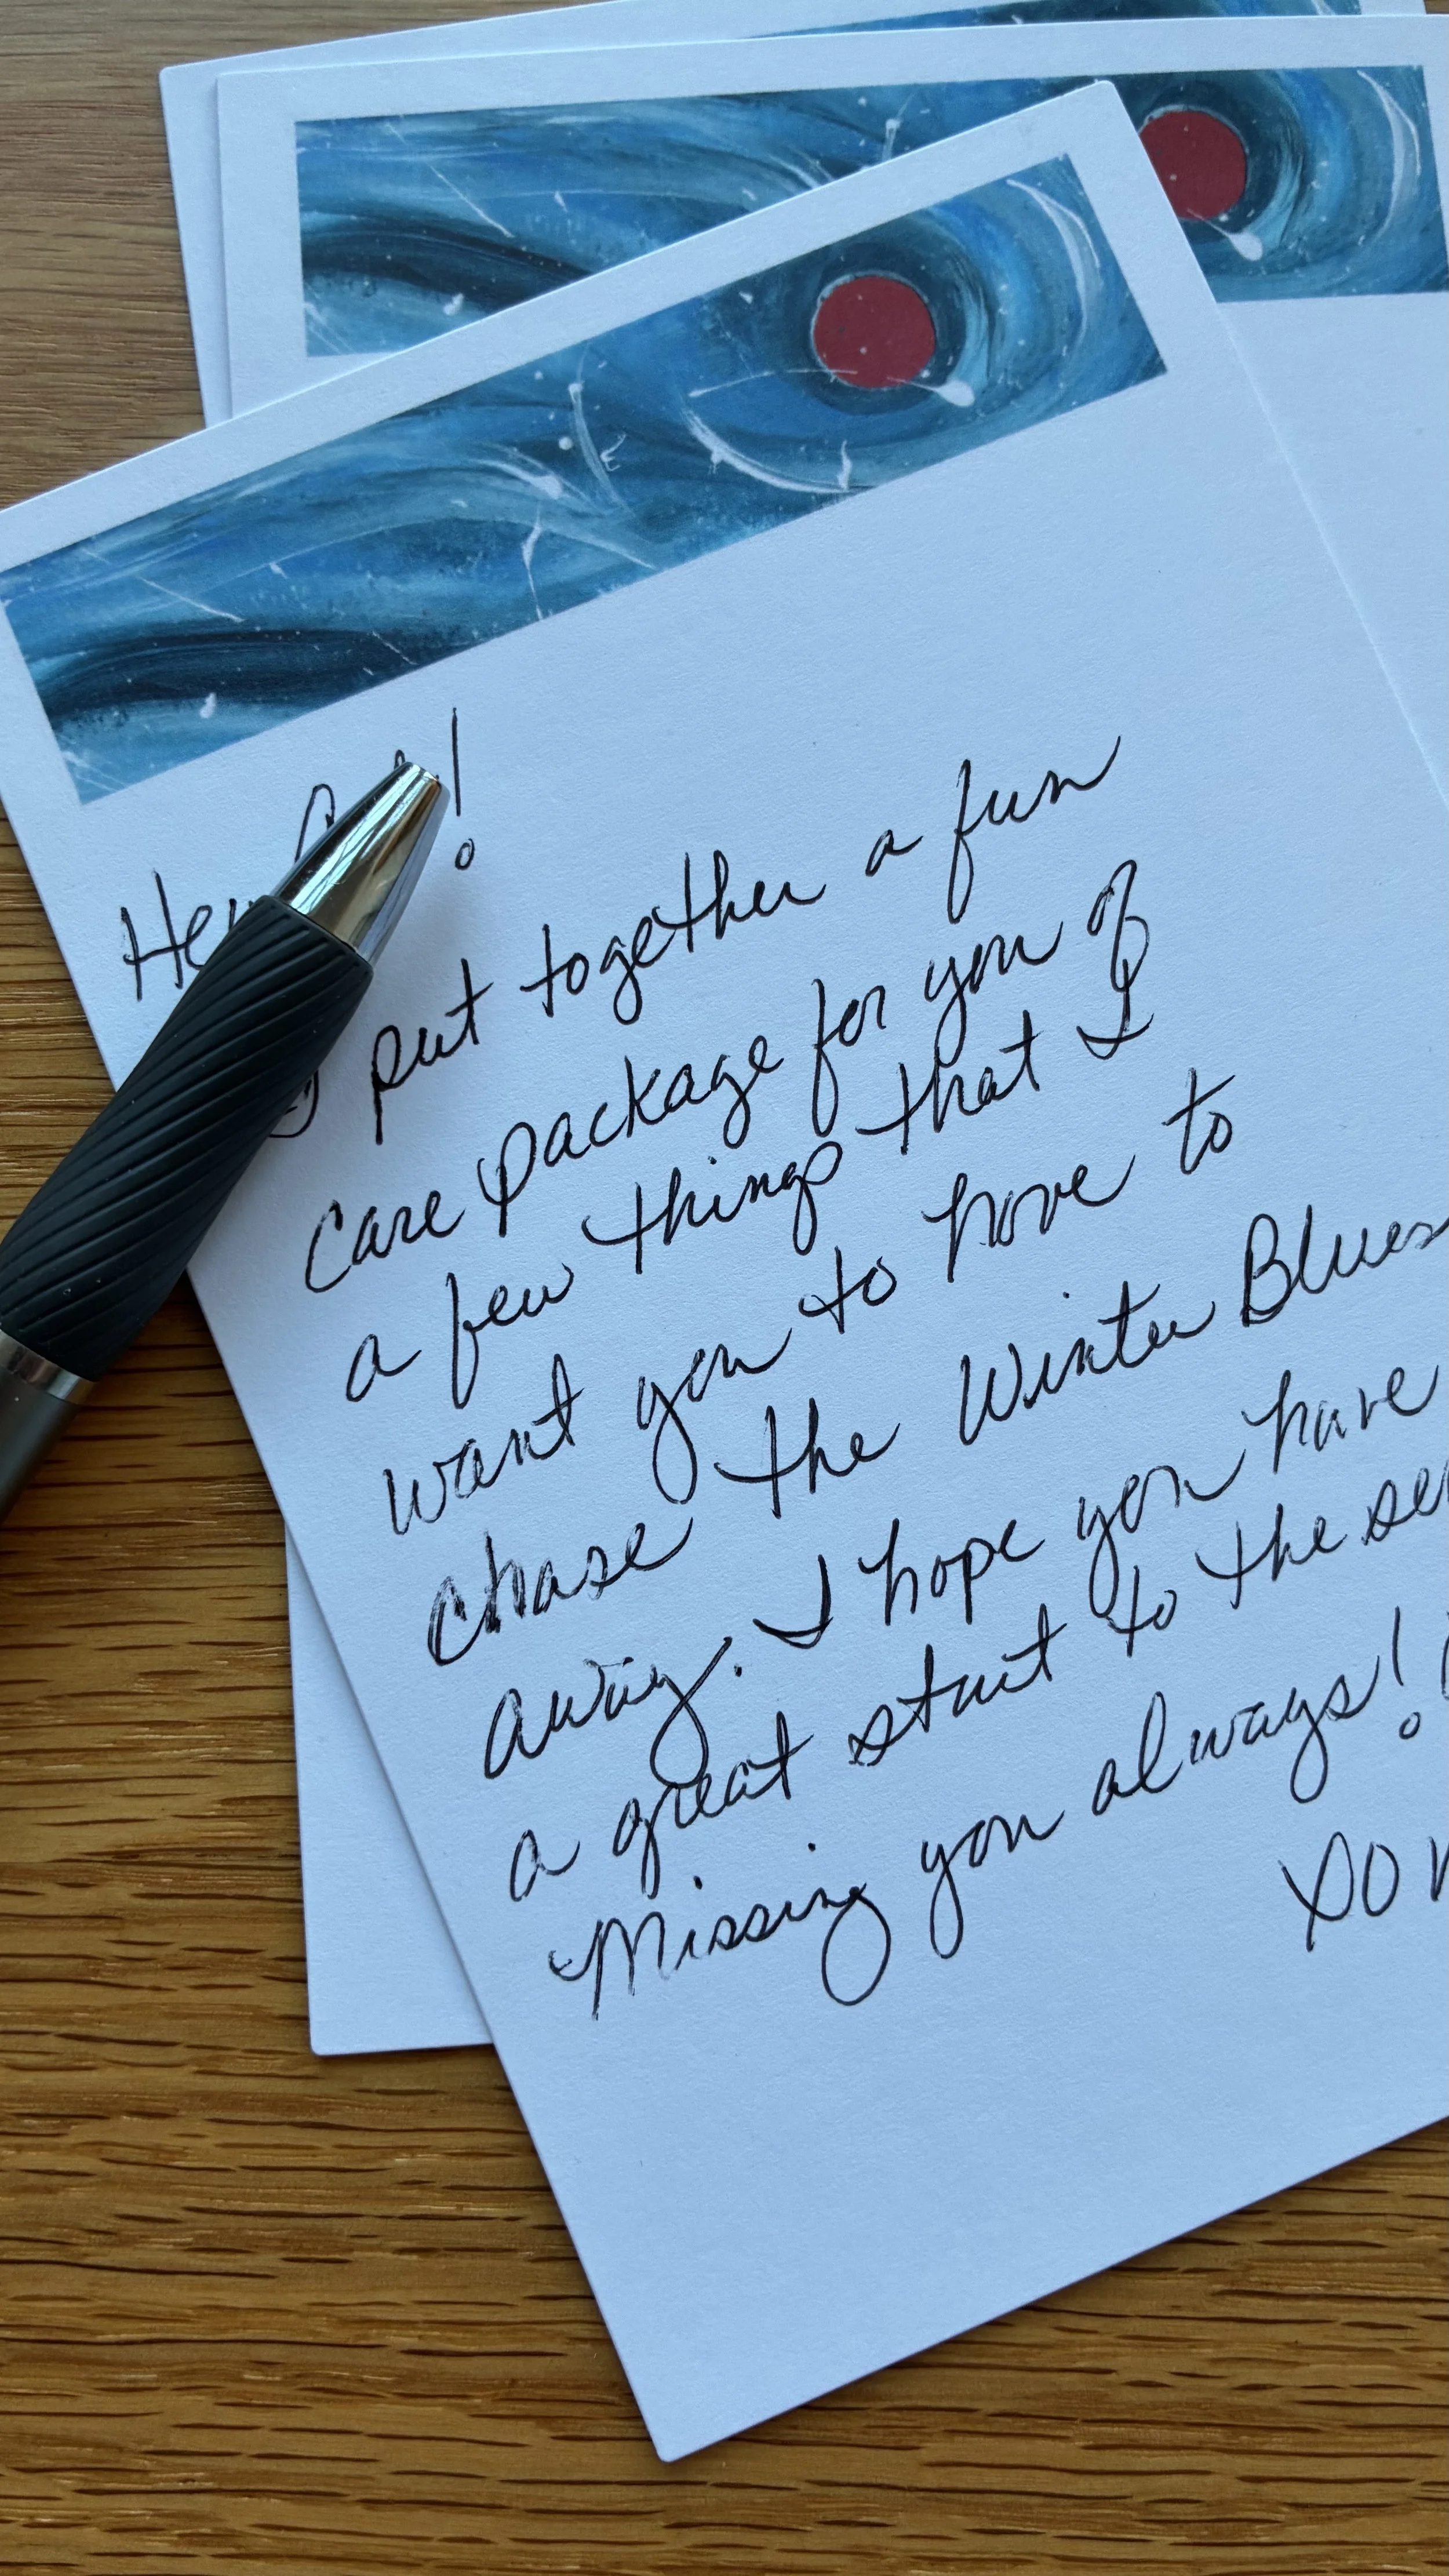 Hey !
put together a fun
care package for you of
a few things that I
want you to have to
chase the Winter Blues
away. I hope you have
a great start to the
Missing you always!
XO